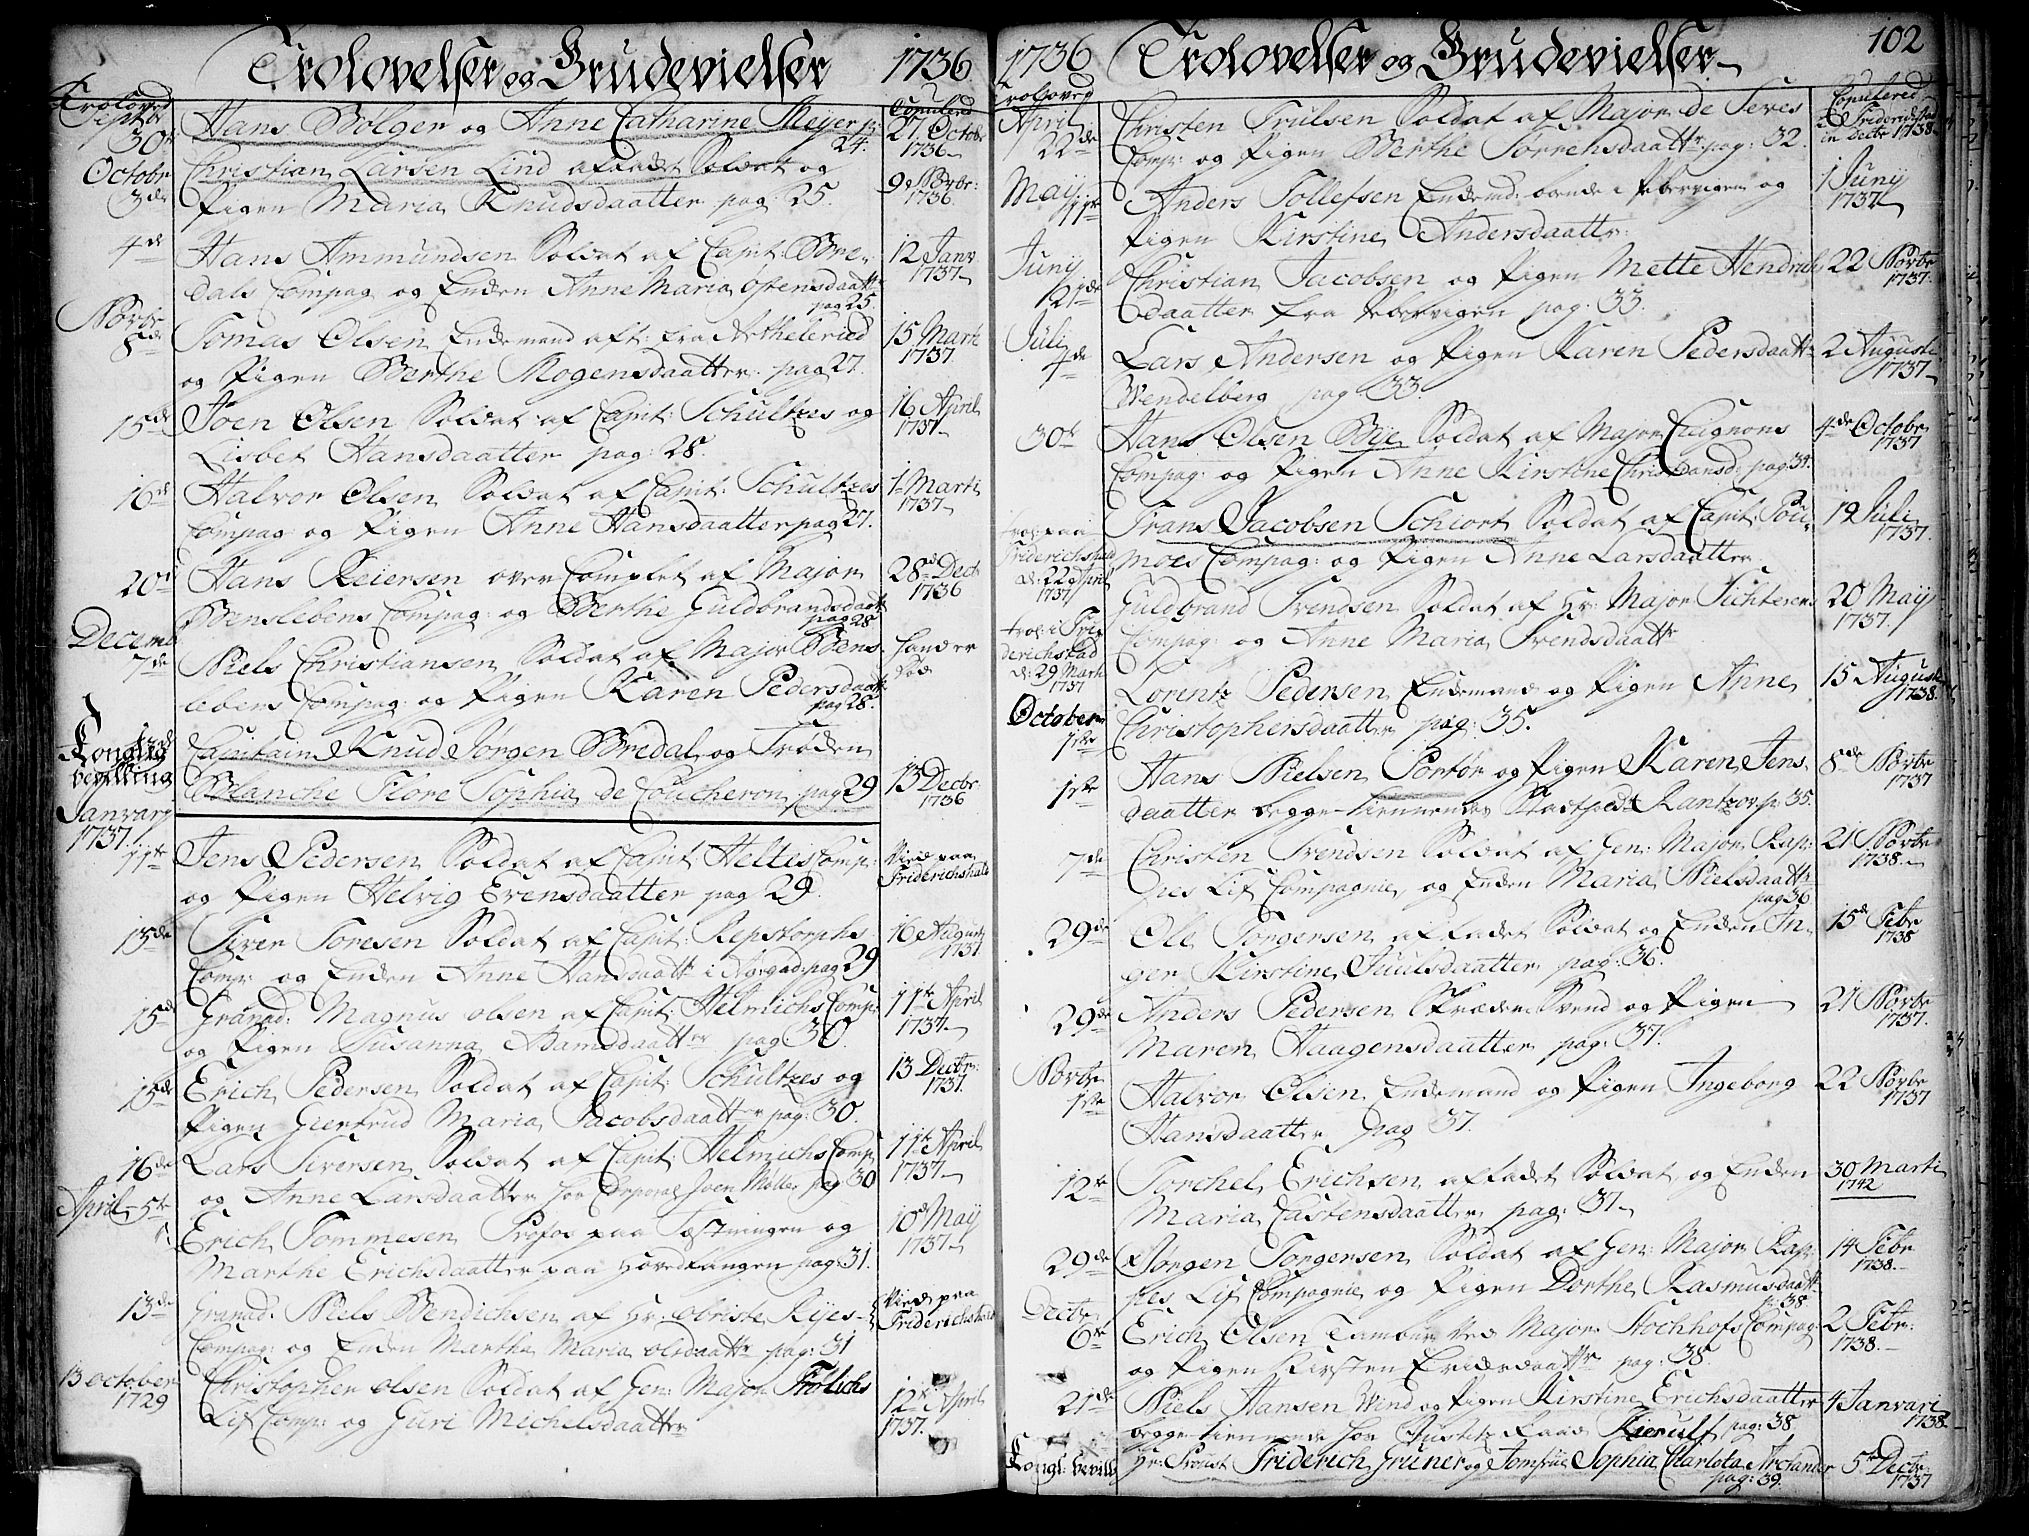 Trolovelser og Brudevielser 1736
Troloved
Septbr 30te Hans Bolger og Anne Catharine Meijer p:
24.
Copulered
27. Octobr
1736
Octobr 3de Christian Larsen Lind afladet Soldat og
Pigen Maria Knudsdaatter pag: 25.
9de Novbr:
1736.
4de Hans Ammundsen Soldat af Capit: Bre-
dals Compag og Enken Anne Maria Østensdaattr
pag 25
12 Janv
1737
Novbr 8de Tomas Olsen Enkemand aft: fra
og Pigen Berthe Mogensdaatter. pag 27.
15 Marti
1737
15de Joen Olsen Soldat af Capit: Schultzes og
Lisbet Hansdaatter pag: 28.
16 April
1737
16de Halvor Olsen Soldat af Capit: Schultzes
Compag og Pigen Anne Hansdaatter pag 27.
1 Marti
1737
20de Hans Reiersen over Complet af Major
Benslebens Compag: og Berthe Guldbrandsdaattr
pag 28
28de Decbr
1736
Decemb 7de Niels Christiansen Soldat af Major Bens-
lebens Compag og Pigen Karen Pedersdaattr
pag 28.
hand er
død
Konglig
bevilling
Capitain Knud Jørgen Bredal og Frøken
Blanche Flore Sophia de Coucheron pag 29
13 Decbr.
1736
Janvary
1737.
11te Jens Pedersen Soldat af Capit: Heltes Comp:
og Pigen Helvig Evensdaatter pag 29.
Vied paa
Friderichshald
13de Siver Toresen Soldat af Capit: Repstorphs
Comp: og Enken Anne Hansdaattr i pag 29
16 August
1737.
15de Granad: Magnus Olsen af Capit: Helmichs Comp:
og Pigen Susanna Adamsdaattr pag 30.
11te April
1737
15de Erich Pedersen Soldat af Capit: Schultzes og
Pigen Giertrud Maria Jacobsdaatter pag: 30.
13 Decbr:
1737.
16de Lars Siversen Soldat af Capit: Helmichs Comp
og Anne Larsdaatter hos Corporal Joen Møller pag 30
11te April
1737
April 5te Erich Tommesen Profos paa Fæstningen og
Marthe Erichsdaatter paa Hovedtangen pag: 31.
10de Maij
1737
13de Granad: Niels Bendichsen af Hr: Obriste Reijes
Compag: og Enken Martha Maria Olsdaattr pag: 31
Vied paa
Friderichshald
13 October
1729
Christopher Olsen Soldat af Gen: Major Frølichs
Lif Comp: og Guri Michelsdaatter
12te April
1737.
1736 Trolovelser og Brudevielser 102
Troloved
April 22de Christen Trulsen Soldat af Major de Seves
Comp: og Pigen Berthe Torrensdaattr pag: 32.
Copulered
i Friderichstad
in Decbr 1738
Maij 11te Anders Tollefsen Enkemd: boende i Pibervigen og
Pigen Kirstine Andersdaatter
1 Junij
1737
Junij 21de Christian Jacobsen og Pigen Mette Hendrichs
daatter fra Pibervigen pag: 33.
22 Novbr
1737.
Juli 4de Lars Andersen og Pigen Karen Pedersdaattr
Wendelberg pag 33.
2 August
1737
30te Hans Olsen Bye Soldat af Major Caignons
Compag: og Pigen Anne Kirstine Christiansd: pag 34.
4de Octobr
1737
trol: paa
Friderichshald
d: 22 April
1737
Frans Jacobsen Schiort Soldat af Capit: Pou-
moes Compag: og Pigen Anne Larsdaatter
19 Juli
1737.
trol: i Fri-
derichstad
d: 29 Marti
1737
Guldbrand Svendsen Soldat af Hr: Major Sichterens
Compag: og Anne Maria Svendsdaattr
20 Maij
1737.
October 1ste Lorentz Pedersen Enkemand og Pigen Anne
Christophersdaatter pag: 35.
15 August
1738.
1ste Hans Nielsen Portør og Pigen Karen Jens-
daatter begge tiennende Rantzov p: 35.
8de Novbr
1737
7de Christen Svendsen Soldat af Gen: Major Rap-
pes Lif Compagnie og Enken Maria Nielsdaattr
pag 36
21 Novbr
1738.
29de Ole Torgersen afladet Soldat og Enken In-
ger Kirstine Juulsdaatter pag: 36.
15de Febr
1738
29de Anders Pedersen Skræder Svend og Pigen
Maren Haagensdaatter pag: 37.
21 Novbr
1737.
Novbr 1ste Halvor Olsen Enkemand og Pigen Ingeborg
Hansdaatter pag 37.
22 Novbr
1737
12te Torchel Erichsen afladet Soldat og Enken
Maria Castensdaatter pag: 37
30 Marti
1742
29de Jørgen Torgersen Soldat af Gen: Major Rap-
pes Lif Compagnie og Pigen Dorthe Rasmusdaattr
p: 38
14 Febr
1738.
Decbr 6te Erich Olsen Tambour ved Major Stochhofs Compag:
og Pigen Kirsten pag: 38.
2 Febr:
1738.
21de Niels Hansen Wind og Pigen Kirstine Erichsdaatter
begge tiennende hos Justitz Raad Kierulf pag: 38
4 Janvari
1738.
Kongl: bevill:
Hr: Provst Friderich Grüner og Jomfrue Sophia Charlota Arctander
pag: 39.
5te Decbr
1737